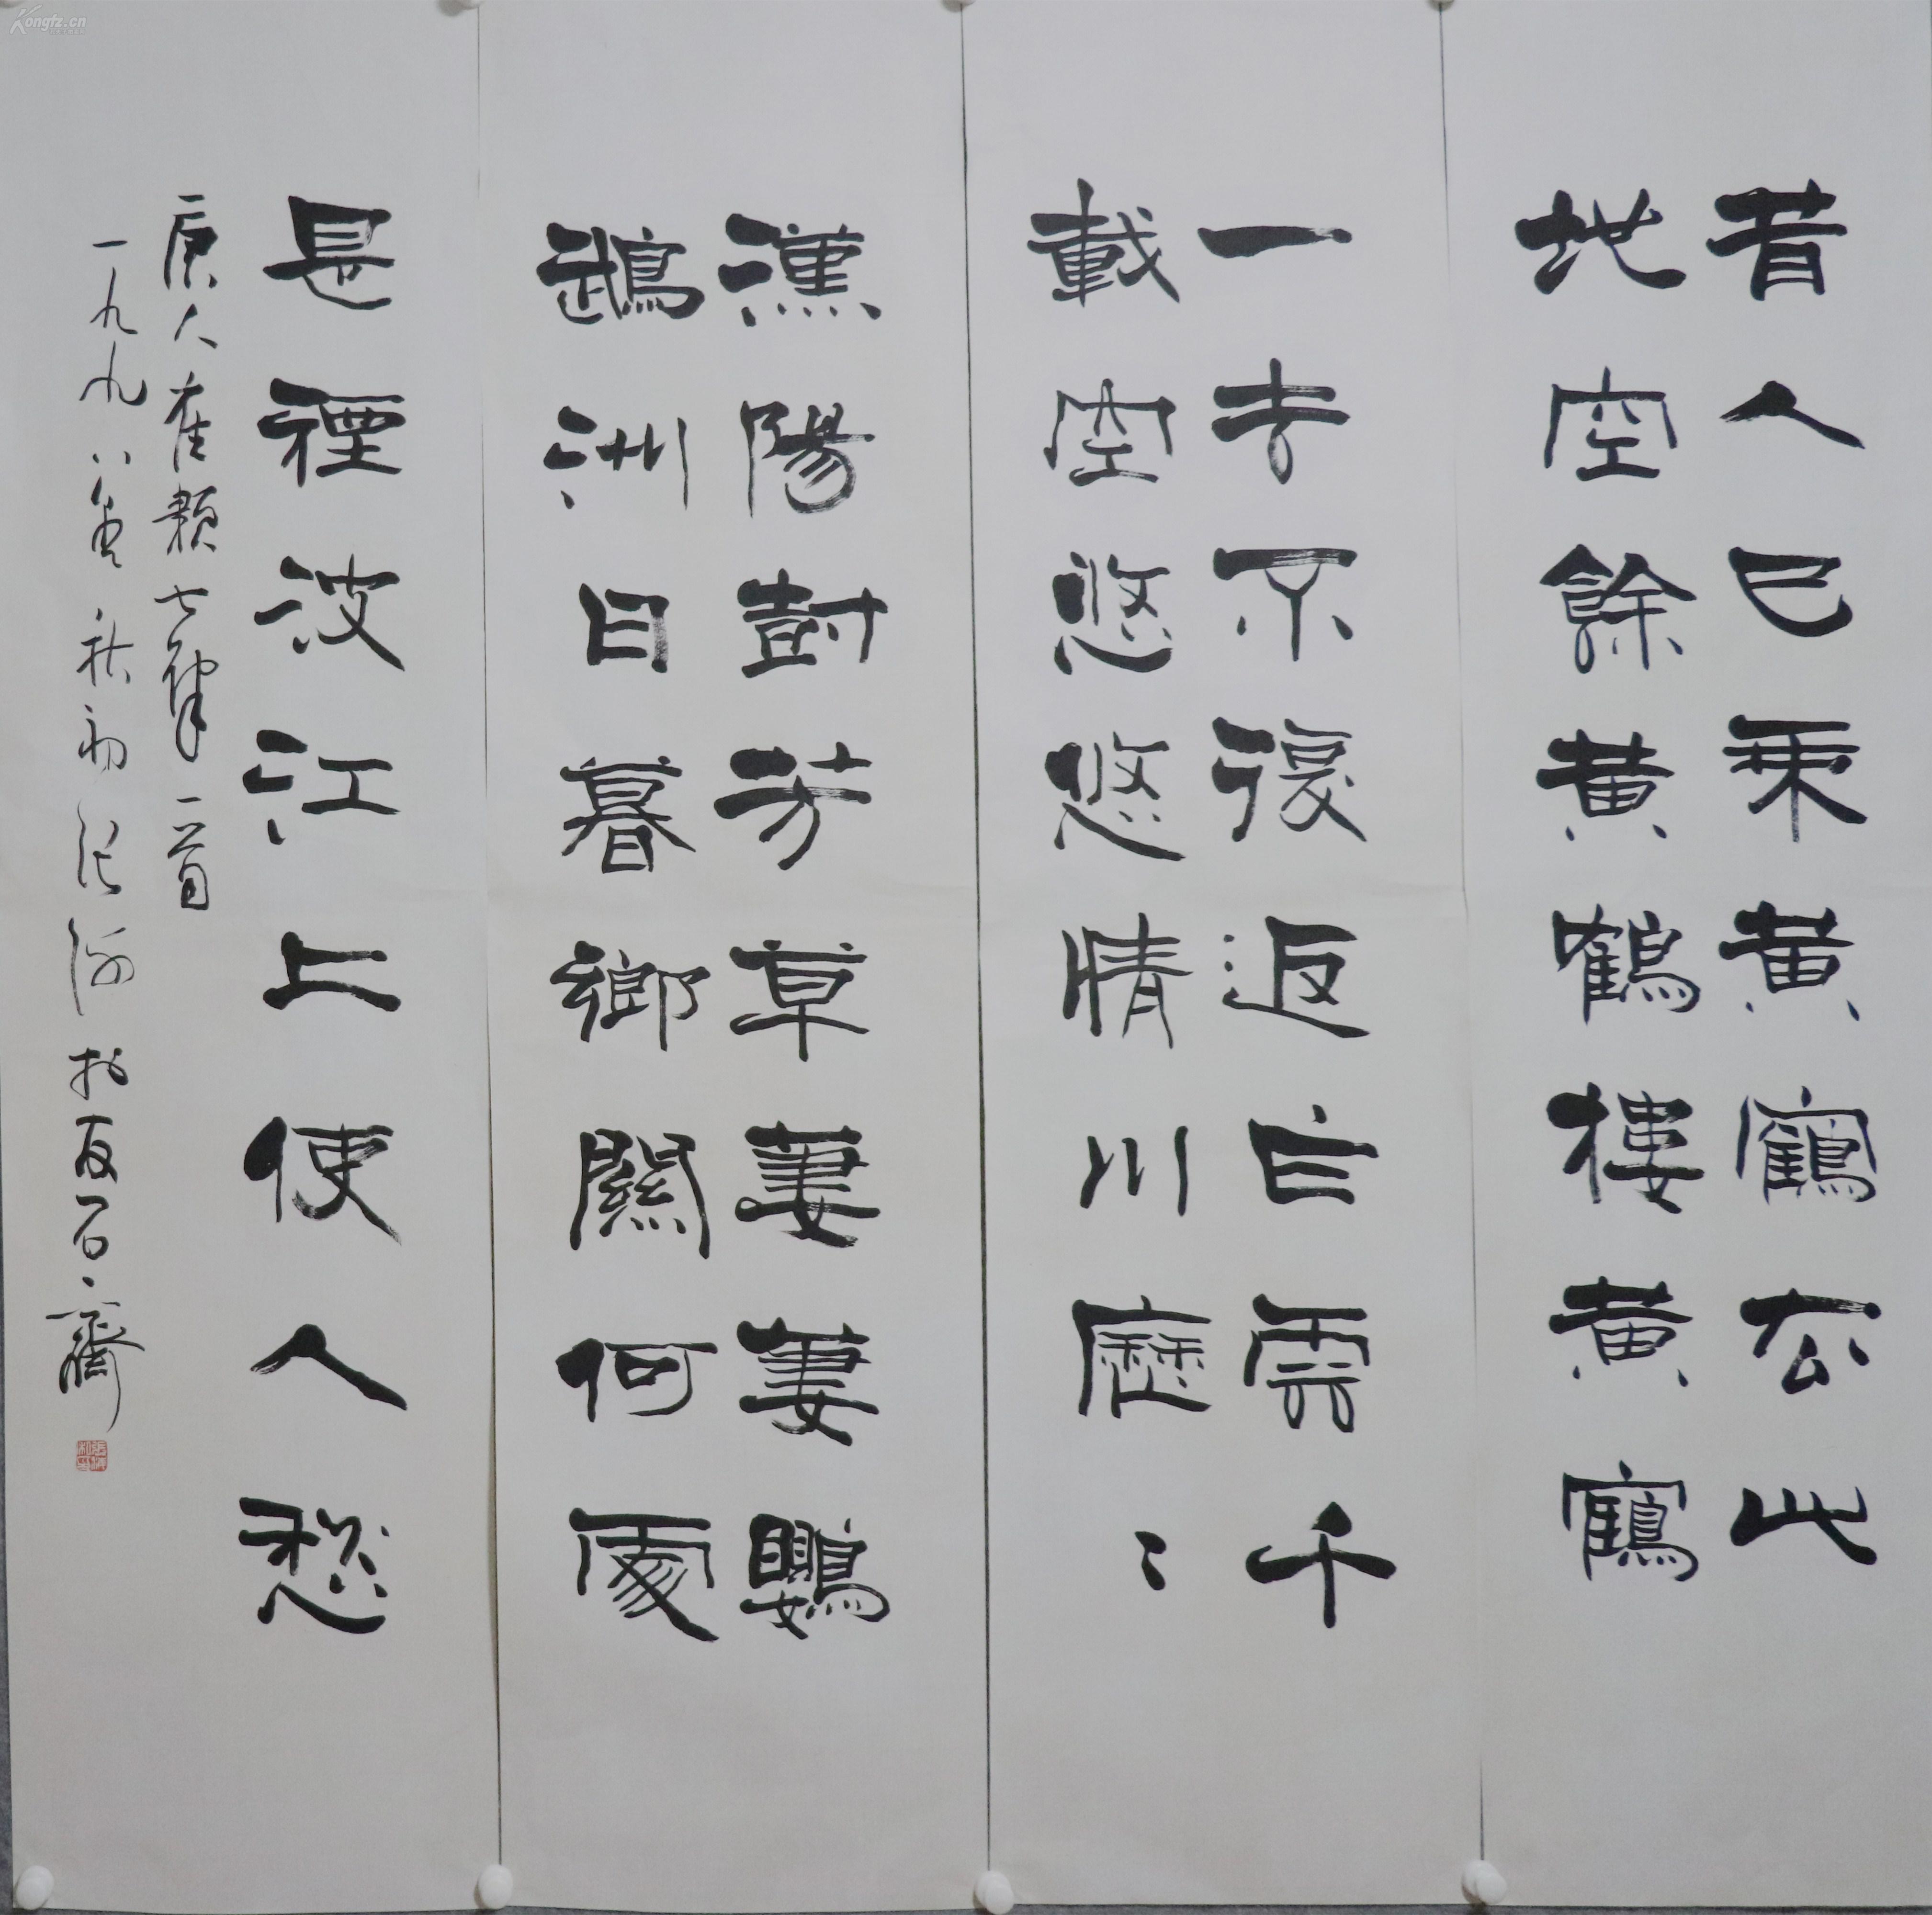 昔人已乘黃鶴去此
地空餘黃鶴樓黃鶴
一去不復返白雲千
載空悠悠晴川歷〻
漢陽尌芳草萋萋鸚
鵡洲日暮鄉關何處
是煙波江上使人愁
唐人崔顥七律一首
一九九八年秋初於石齋
Kongfz.cn